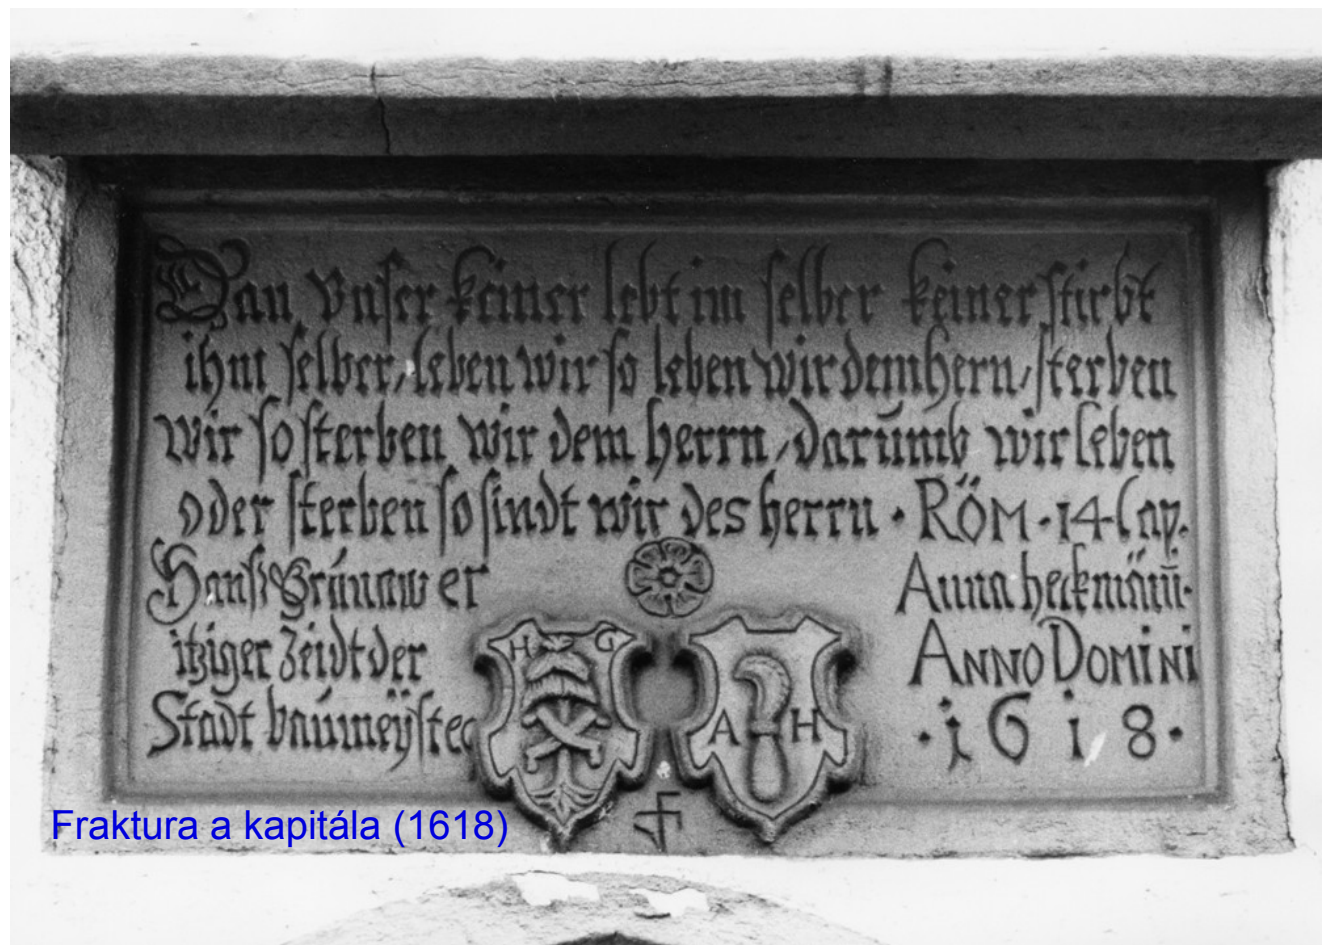 Dan vnser keiner lebt im selber keiner stirbt
ihm selber, leben wir so leben wir dem hern, sterben
wir so sterben wir dem herrn, darumb wir leben
oder sterben so sindt wir des herrn · RÖM · 14 Cap.
Hans Grunawer
itziger zeidt der
Stadt baumeÿster
Anna heckmänin·
ANNO DOMINI
·1618·
H G
A H
Fraktura a kapitála (1618)